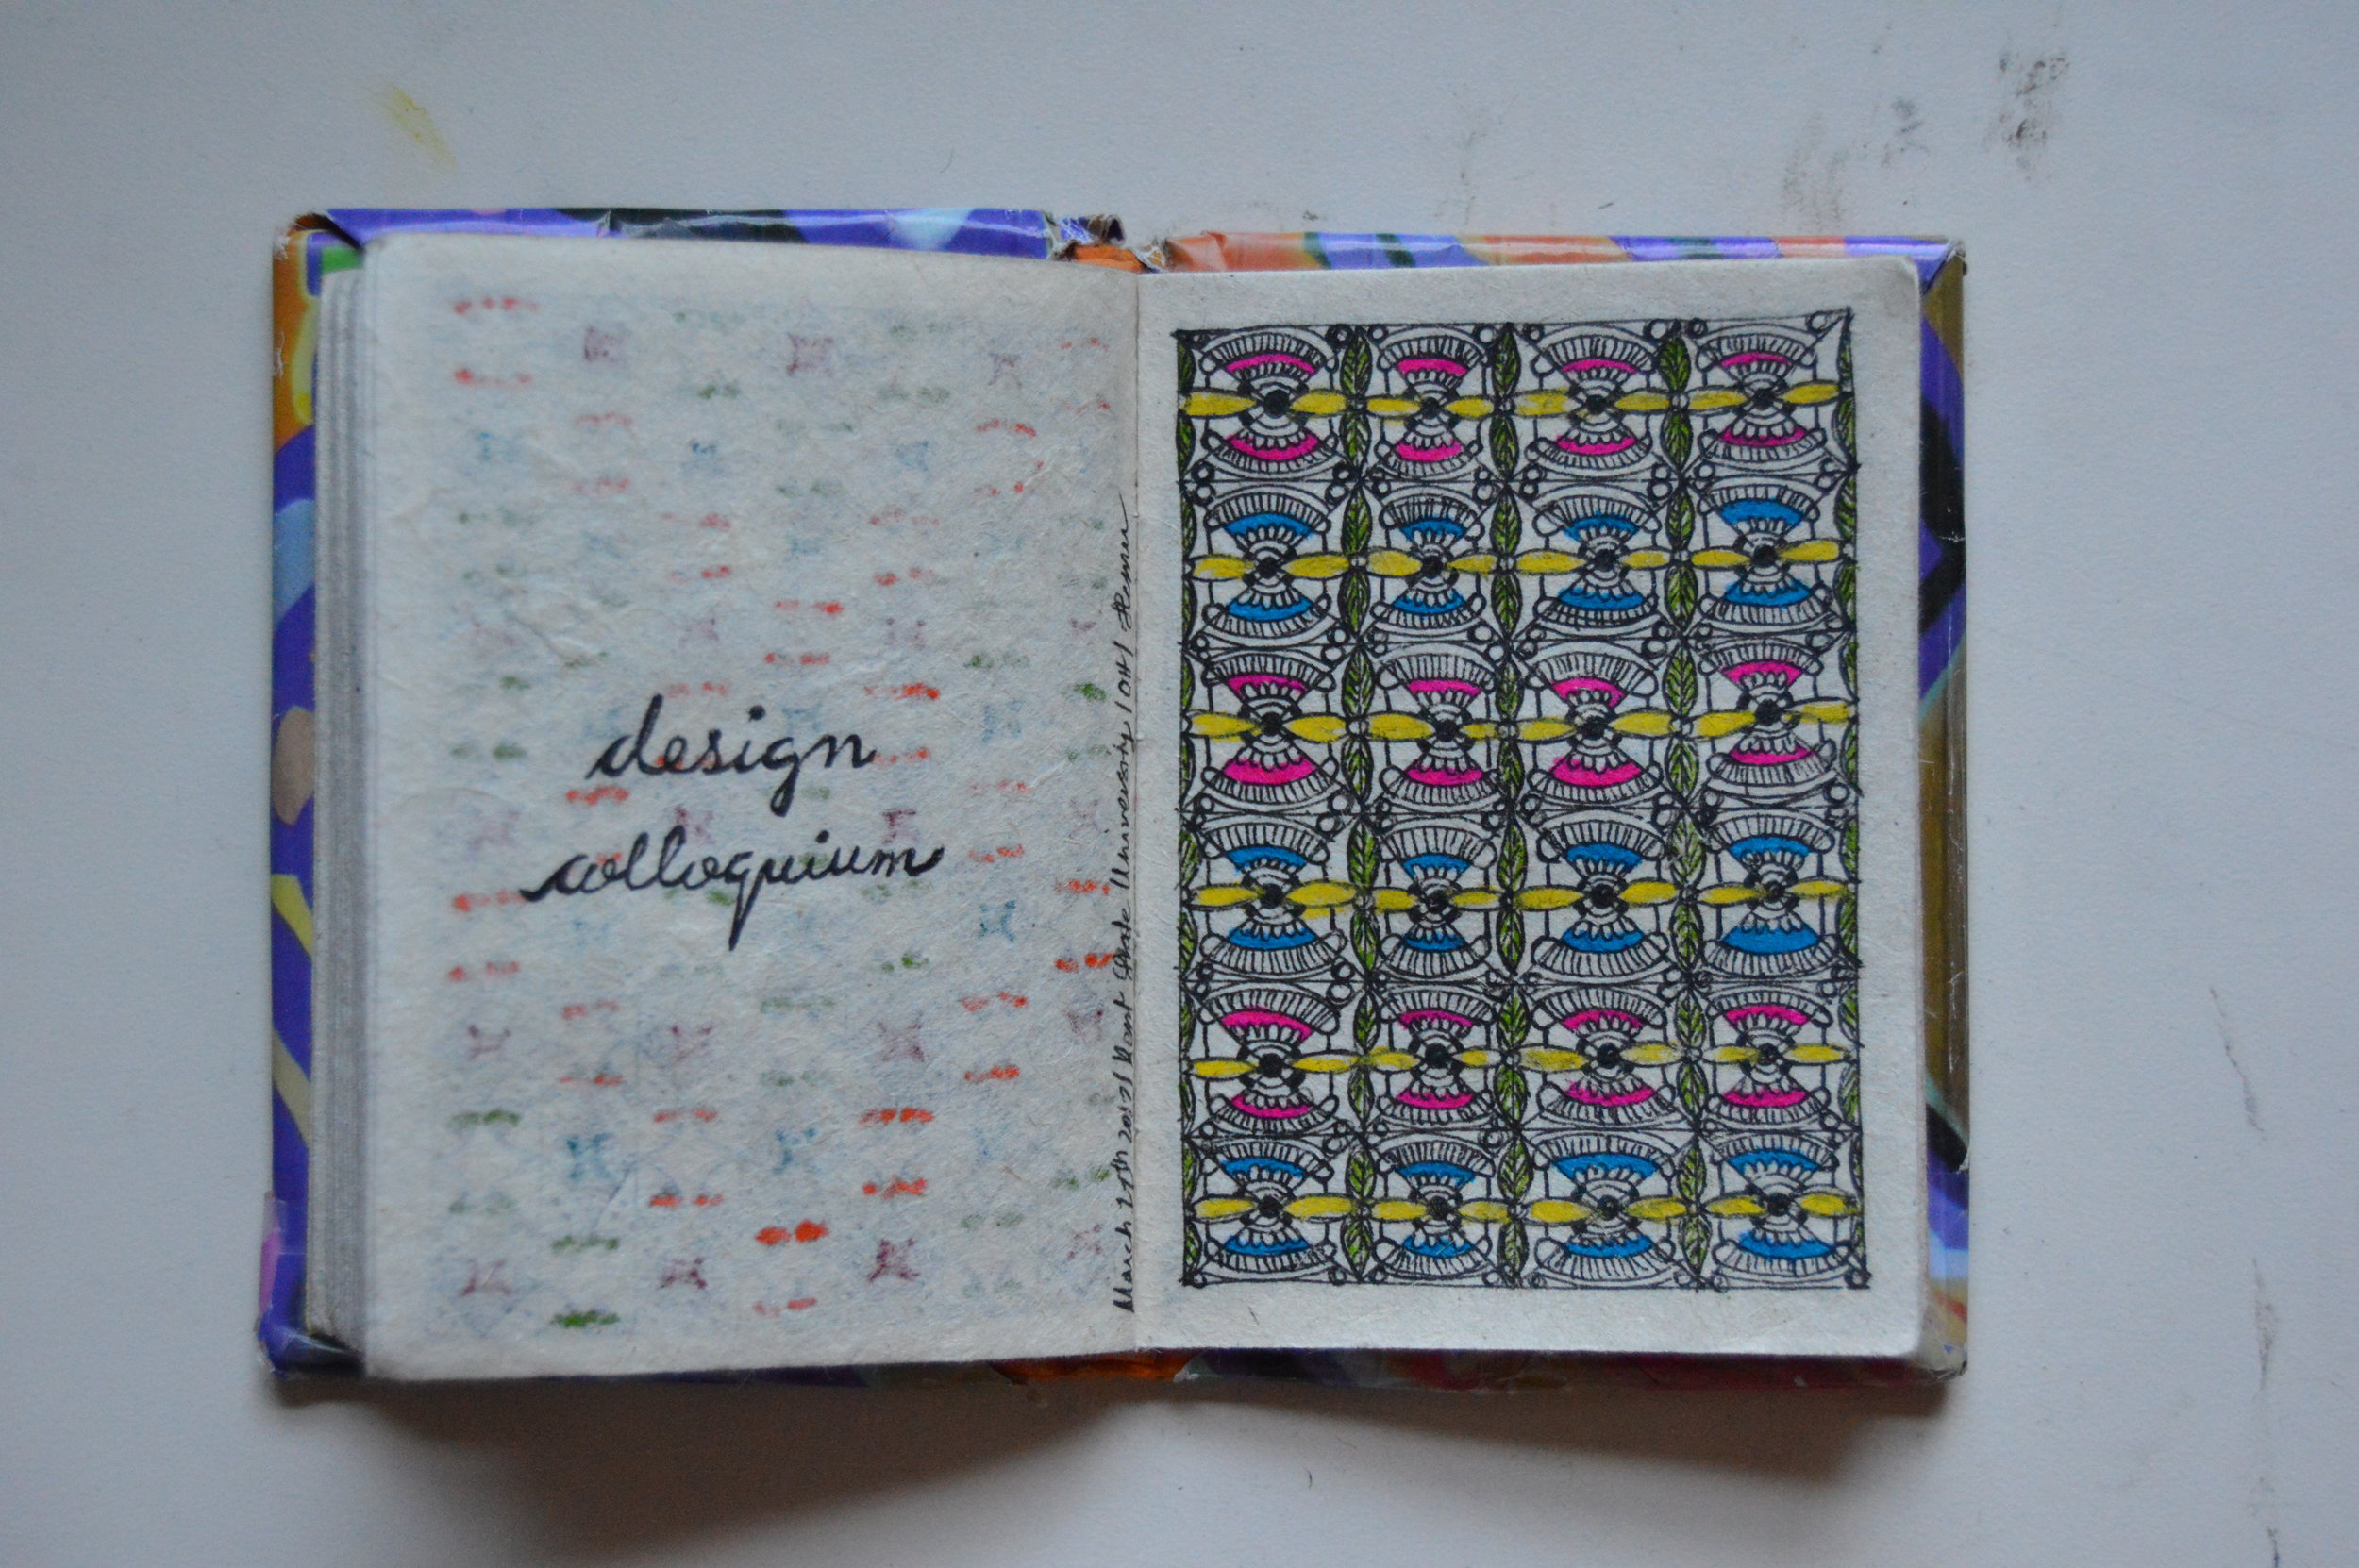 design
colloquium
March 27th 2017 / Kent State University / OH /